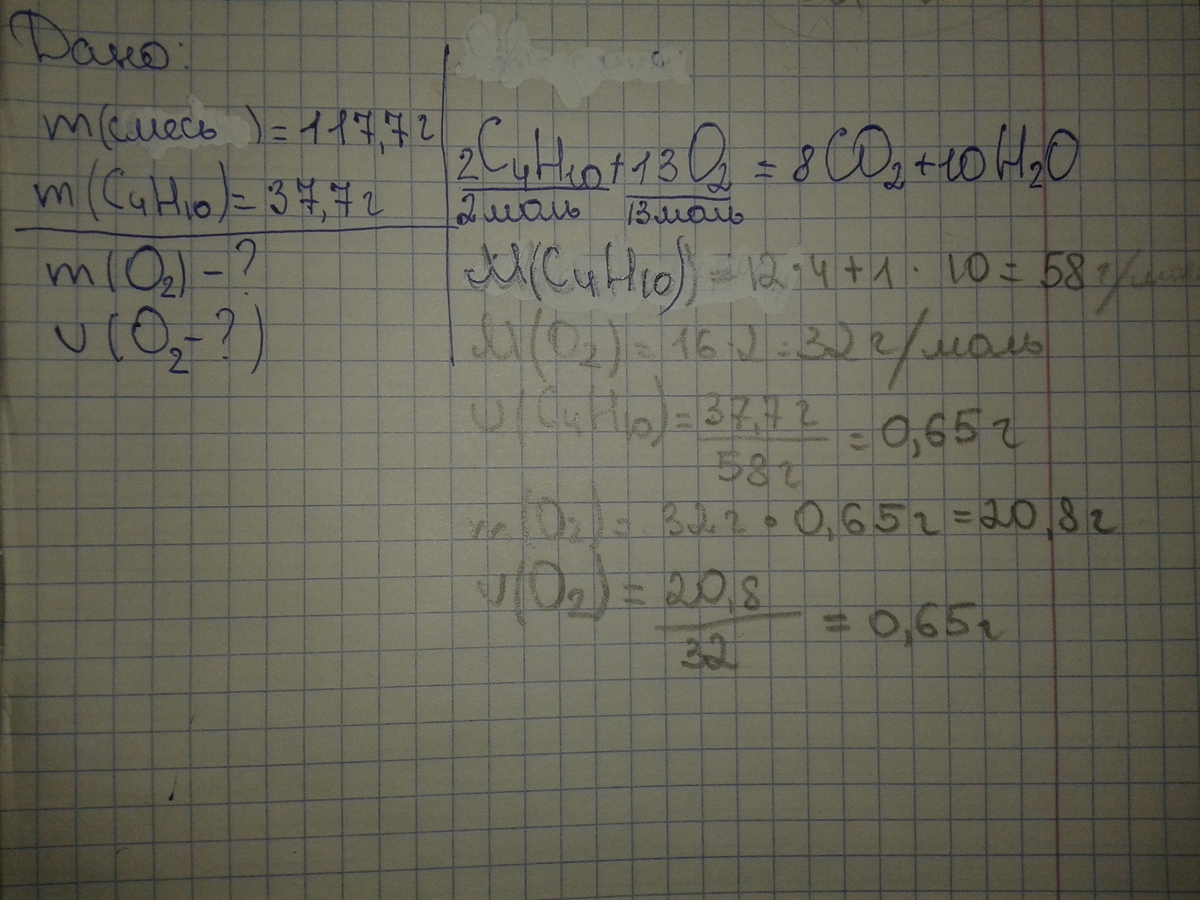 Дано:
m(смесь ) = 117,7 г
m(C4H10) = 37,7 г
m(O2) - ?
υ(O2 - ?)
2C4H10 + 13O2 = 8CO2 + 10H2O
2 моль 13 моль
M(C4H10) = 12 · 4 + 1 · 10 = 58 г/моль
M(O2) = 16 · 2 = 32 г/моль
υ(C4H10) = 37,7 г / 58 г = 0,65 г
m(O2) = 32 г · 0,65 г = 20,8 г
υ(O2) = 20,8 / 32 = 0,65 г